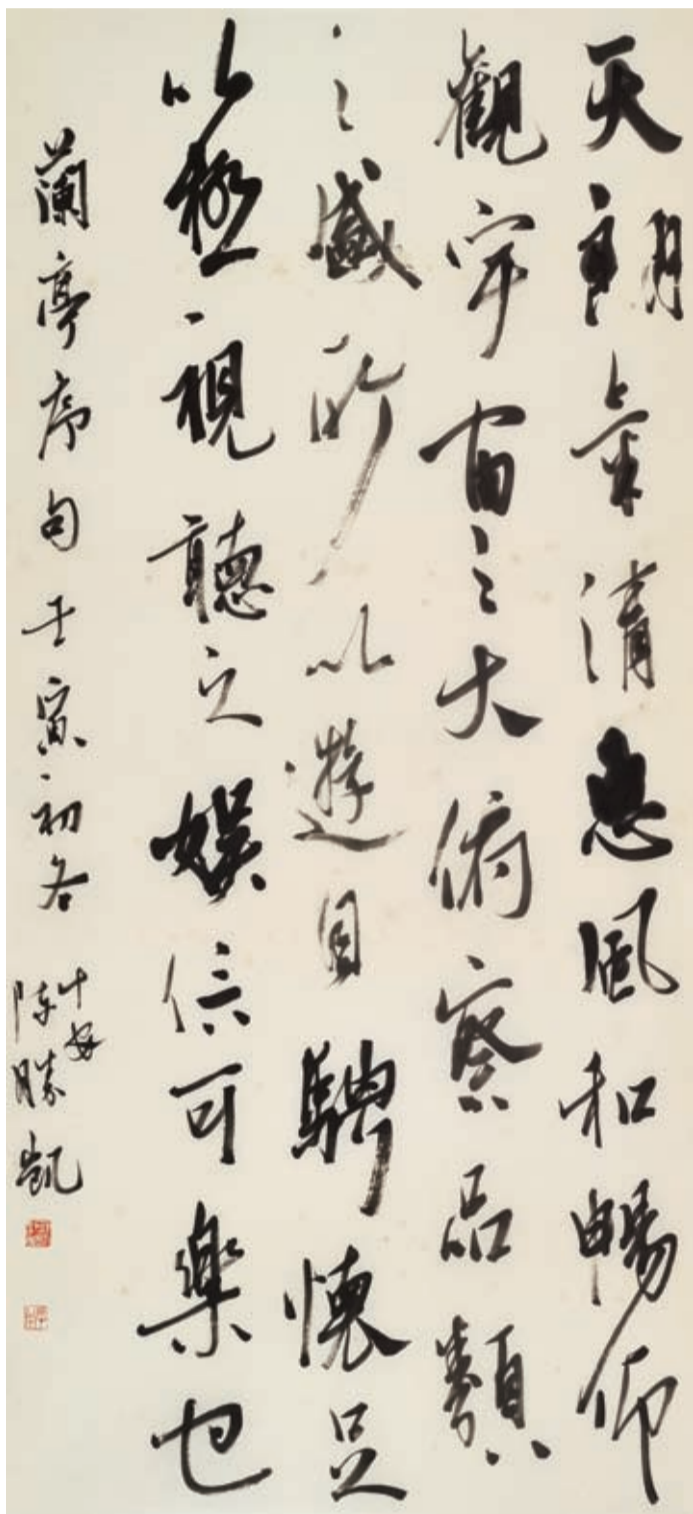 天朗氣清惠風和暢仰
觀宇宙之大俯察品類
之盛所以遊目騁懷足
以極視聽之娛信可樂也
蘭亭序句壬寅初冬
陳勝凱